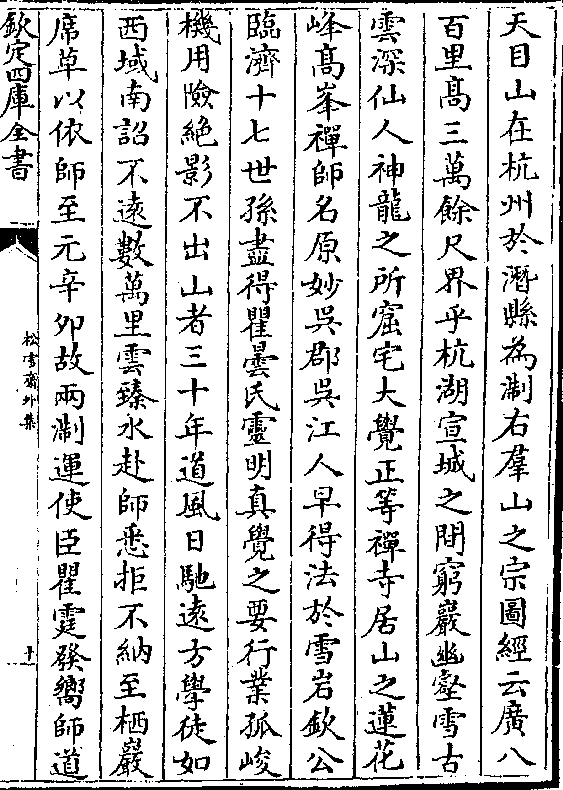 天目山在杭州於潛縣為淛右羣山之宗圖經云廣八
百里高三萬餘尺界乎杭湖宣城之間窮巖幽壑雪古
雲深仙人神龍之所窟宅大覺正等禪寺居山之蓮花
峰高峯禪師名原妙吳郡吳江人早得法於雪岩欽公
臨濟十七世孫盡得瞿曇氏靈明真覺之要行業孤峻
機用險絕影不出山者三十年道風日馳遠方學徒如
西域南詔不遠數萬里雲臻水赴師悉拒不納至栖巖
席草以依師至元辛卯故兩淛運使臣瞿霆發嚮師道
欽定四庫全書
松雪齋外集
十